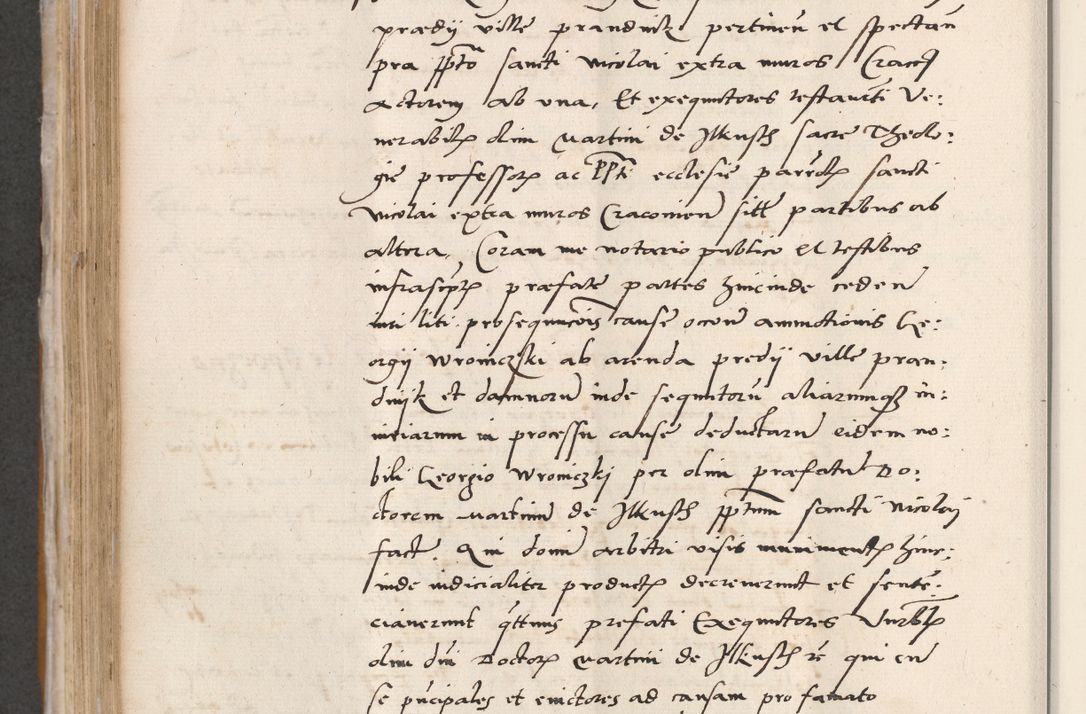 prædij ville prandnik pertinen̄ et spectan̄
pra ppt̄o sancti nicolai extra muros Cracoꝯ
actorem ab vna, Et exequutores testam̄ti Ve:
nerabilꝭ olim martini de Jlkusch sacre Theolo:
gie professorꝭ ac pp̄ti ecclesie parr̄olꝭ sancti
nicolai extra muros Cracouien̄ sitē partibus ab
altera, Coram me notario publico et testibus
infrascp̄tꝭ præfate partes hincinde ceden̄
liti prosequucōis cause occon̄ ammotionis Ge:
orgij wroniczki ab arenda predij ville pran:
dnijk et damnorū inde sequutorū aliarumqꝫ in:
iuriarum in processu cause deductarū eidem no:
bili Georgio wroniczkj per olim præfatū Do:
ctorem martinū de Jlkusch pp̄tum sancti nicolaj
fact̄. Qui domī arbitri visis munimentꝭ hinc:
inde iudicialiter productꝭ decreuerunt et senten̄:
ciauerunt q̄ttinus prefati Exequutores Vn̄rblꝭ
olim dn̄i Doctorꝭ martini de Jlkusch r̄e qui cū
se pn̄cipales et euictores ad causam pro famato